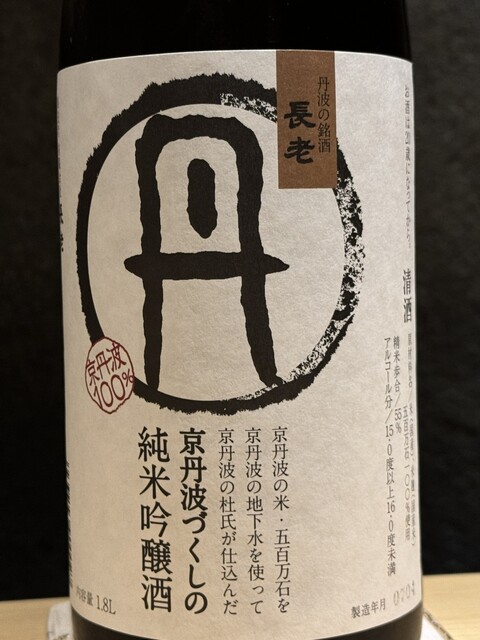 丹波の銘酒
長老
丹
京丹波
100%
京丹波の米・五百万石を
京丹波の地下水を使って
京丹波の杜氏が仕込んだ
京丹波づくしの
純米吟醸酒
内容量 1.8L
お酒は20歳になってから
清酒
原材料名/米(国産)米麹(国産米)
五百万石一〇〇%使用
精米歩合/55%
アルコール分/15.0度以上16.0度未満
製造年月